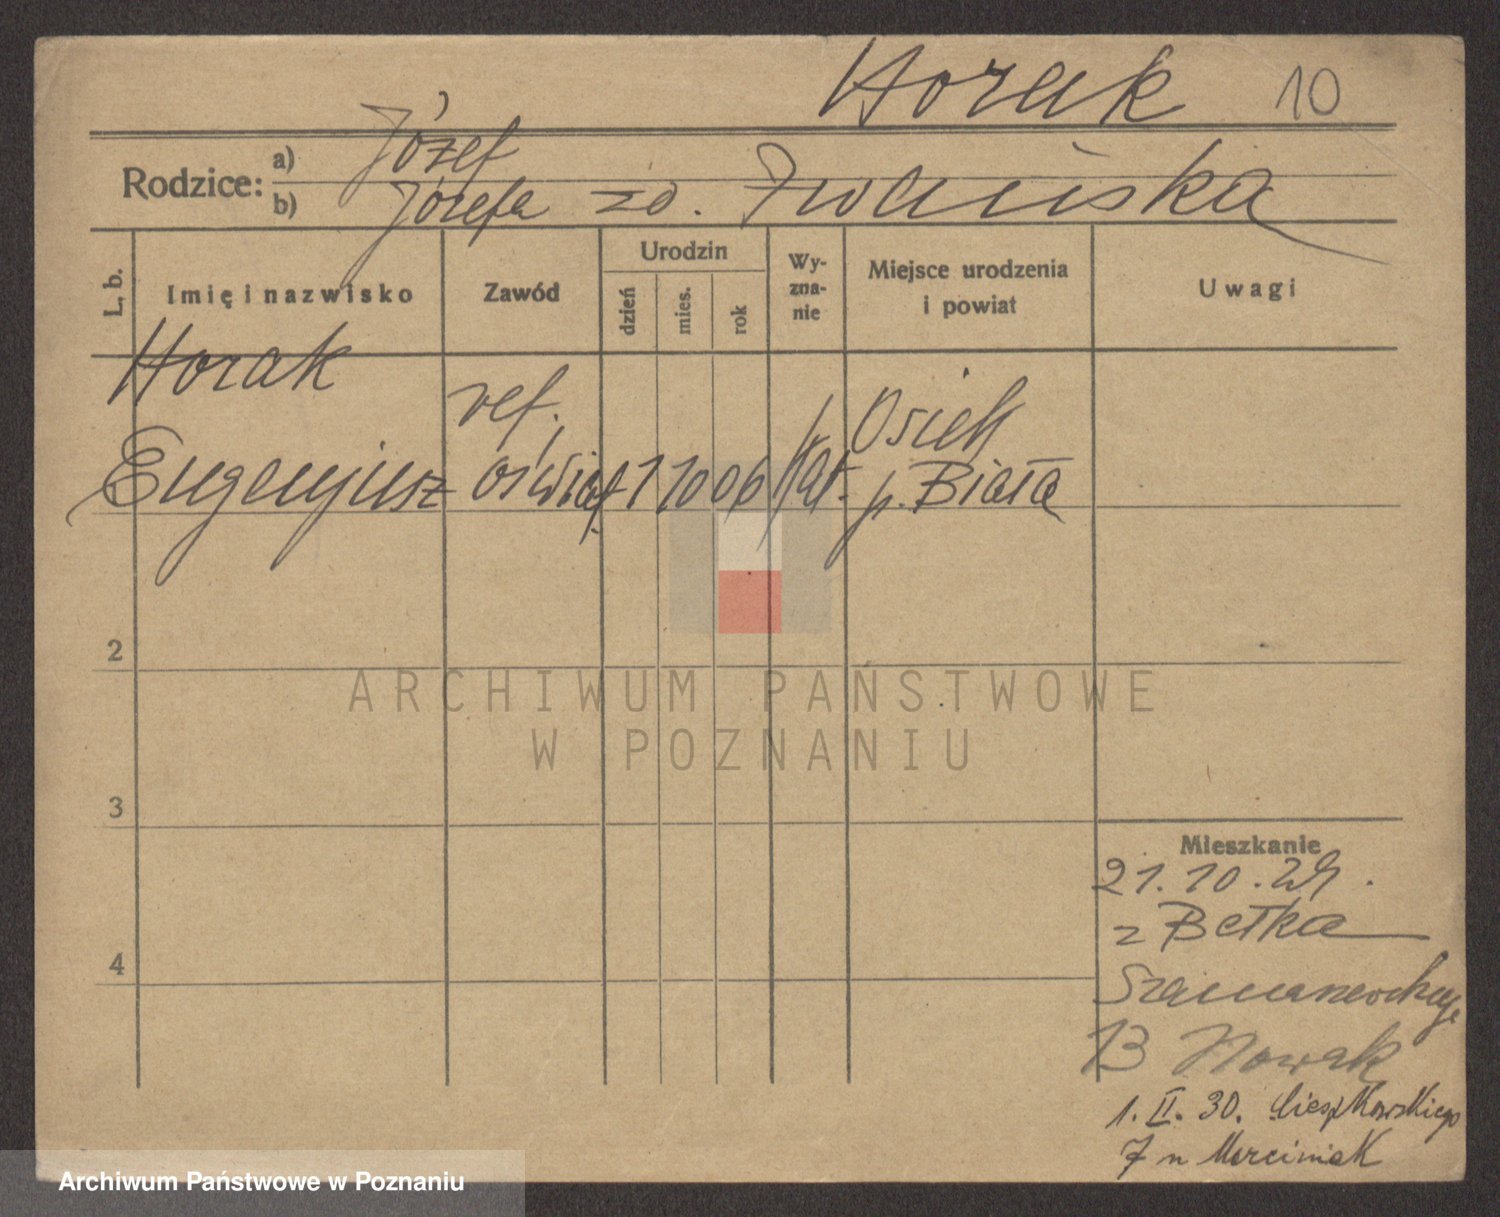 Horak 10
Rodzice: a) Józef
b) Józefa zd. Iwańska
L. b.
Imię i nazwisko
Zawód
Urodzin
dzień
mies.
rok
Wy-
zna-
nie
Miejsce urodzenia
i powiat
Uwagi
Horak
Eugenjusz
ref.
oświat.
1 10 06
Kat.
Osiek
p. Biała
2
3
4
Mieszkanie
21.10.29.
z Bełka
13 Nowak
1. II. 30. Cieszkowskiego
7 n Marciniak
ARCHIWUM PAŃSTWOWE
W POZNANIU
Archiwum Państwowe w Poznaniu